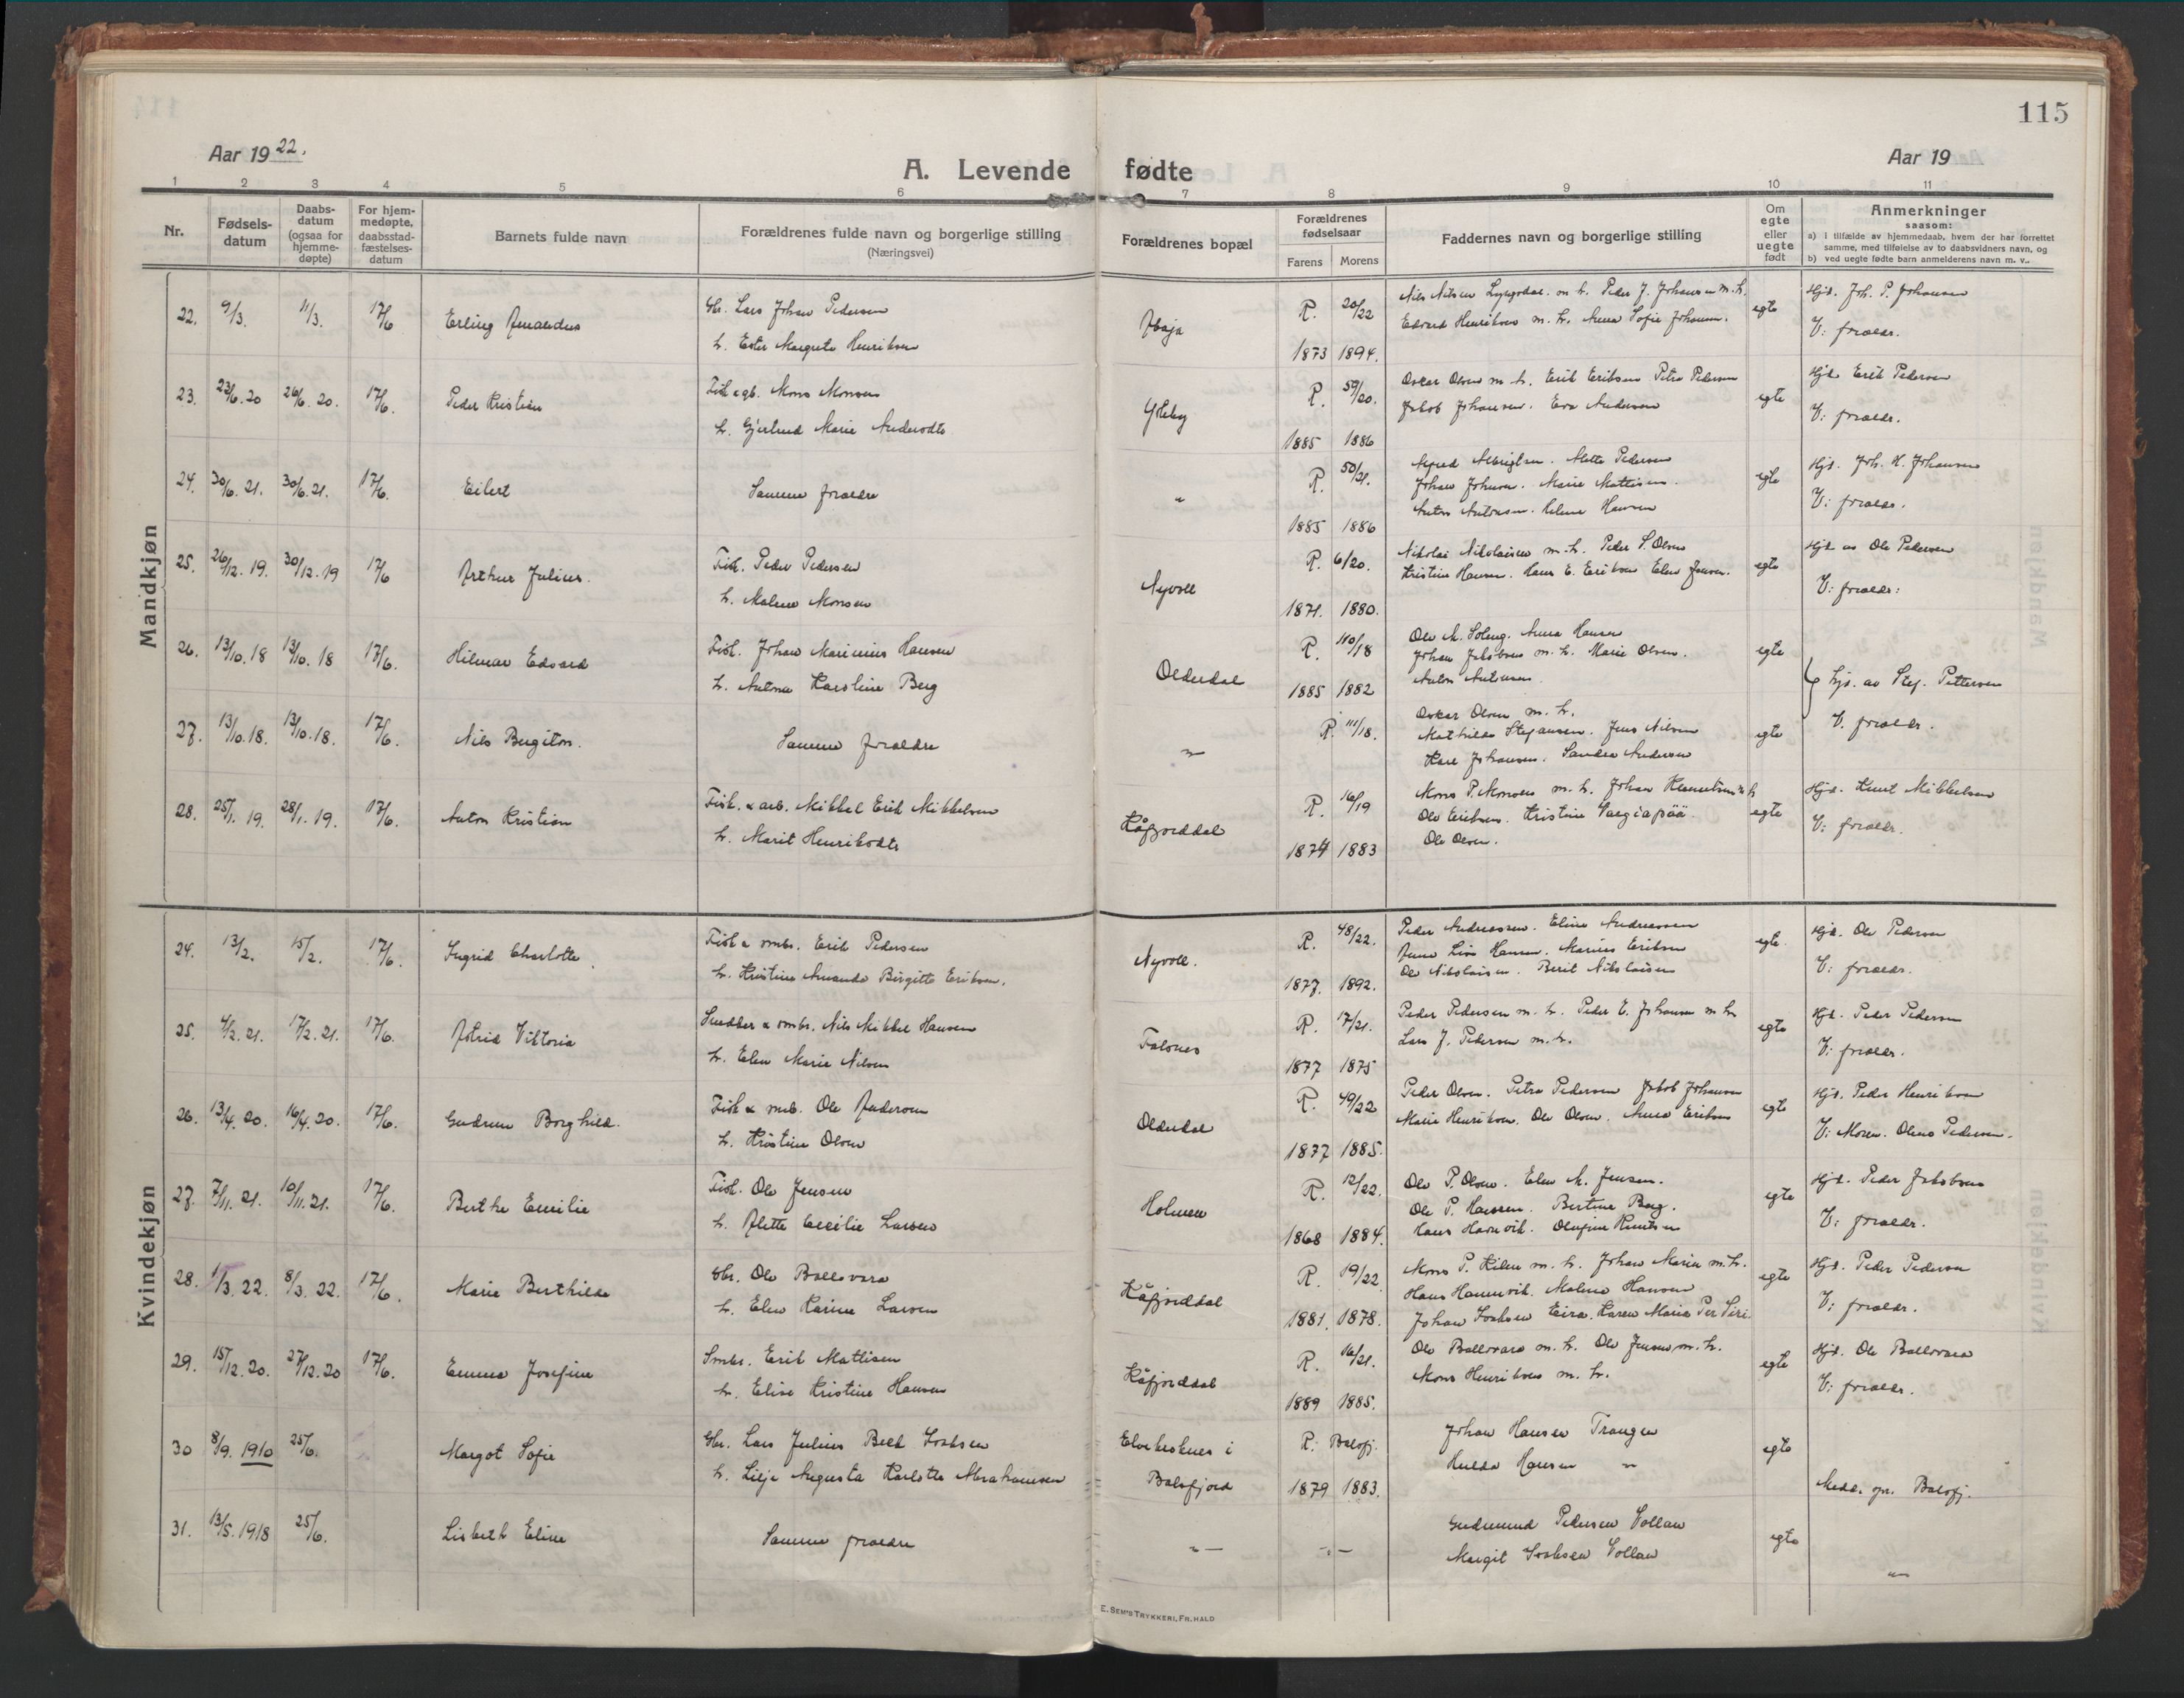 115
Aar 1922.
A. Levende fødte
Aar 19
1 2 3 4 5 6 7 8 9 10 11
Nr.
Fødsels-
datum
Daabs-
datum
(ogsaa for
hjemme-
døpte)
For hjem-
medøpte,
daabsstad-
fæstelses-
datum
Barnets fulde navn
Forældrenes fulde navn og borgerlige stilling
(Næringsvei)
Forældrenes bopæl
Forældrenes
fødselsaar
Farens Morens
Faddernes navn og borgerlige stilling
Om
egte
eller
uegte
født
Anmerkninger
saasom:
a) i tilfælde av hjemmedaab, hvem der har forrettet
samme, med tilføielse av to daabsvidners navn, og
b) ved uegte fødte barn anmelderens navn m. v..
Mandkjøn
22. 9/3. 11/3. 17/6 Erling Amandus
Gbr. Lars Johan Pedersen
h. Ester Margrete Henriksen
R. 20/22
1873 1894.
Peder J. Johansen m. h.
Edvard Henriksen m. h. Anna Sofie Johansen.
egte
Hjd. Joh. P. Johansen
V: forældr.
23. 23/6. 20 26/6. 20. 17/6. Peder Kristian
Fisk & gb. Mons Monsen
h. Gjertrud Marie Andersdtr
R. 59/20.
1885 1886
Oskar Olsen m. h. Erik Eriksen Petra Pedersen
Jakob Johansen. Eva Andersen
egte
Hjd. Erik Pedersen
V: forældr.
24. 30/6. 21. 30/6. 21. 17/6. Eilert
Samme forældre
"
R. 50/21.
1885 1886
Mette Pedersen
Johan Johnsen. Marie Mattisen.
Anton Antonsen. Hansen
egte
Hjd. Joh. H. Johansen
V: forældr.
25. 26/12. 19. 30/12. 19 17/6 Arthur Julius.
Fisk. Peder Pedersen
h. Malene Monsen
Nyvoll
R. 6/20.
1871. 1880.
Nikolai Nikolaisen m. h. Peder S. Olsen
Kristine Hansen. Hans E. Eriksen Elen Jensen.
egte
Hjd. av Ole Pedersen
V: forældr:
26. 13/10. 18 13/10. 18 17/6. Hilmar Edvard
Fisk. Johan Marinius Hansen
h. Antona Karoline Berg
Olderdal
R. 110/18
1885 1882
Ole M. Soleng. Anna Hansen
Johan Jakobsen m. h. Marie Olsen.
Anton Antonsen.
egte
hjd. av Stef. Pettersen
V. forældr.
27. 13/10. 18. 13/10. 18. 17/6. Nils Bergiton.
Samme forældre
"
R. 111/18.
Oskar Olsen m. h.
Mathilde Stefansen. Jens Nilsen
Kare Johansen. Sandra Andersen
egte
28. 25/1. 19. 28/1. 19. 17/6. Anton Kristian
Fisk. & arb. Mikkel Erik Mikkelsen
h. Marit Henriksdtr
Kåfjorddal
R. 16/19
1874 1883
Mons P. Monsen m. h. Johan
Ole Eriksen. Kristine
Ole Olsen.
egte
Hjd. Knut Mikkelsen
V: forældr.
Kvindekjøn
24. 13/2. 15/2. 17/6. Ingrid Charlotte
Fisk & smbr. Erik Pedersen
h. Kristine Amanda Birgitte Eriksen.
Nyvoll.
R. 48/22.
1877. 1892.
Peder Andreassen. Eline Andreassen
Hansen. Marius Eriksen
Ole Nikolaisen. Berit Nikolaisen
egte.
Hjd. Ole Pedersen
V: forældr.
25. 4/2. 21. 17/2. 21. 17/6. Astrid Viktoria
Snedker & smbr. Nils Mikkel Hansen
h. Elen Marie Nilsen
Falsnes
R. 17/21.
1877 1875
Peder Pedersen m. h. Peder E. Johansen m. h.
Lars J. Pedersen m. h.
egte
Hjd. Peder Pedersen
V: forældr.
26. 13/4. 20. 16/4. 20. 17/6. Gudrun Borghild.
Fisk & smb. Ole Andersen
h. Kristine Olsen
Olderdal
R. 49/22
1877 1885.
Peder Olsen. Petra Pedersen Jakob Johansen
Marie Henriksen. Ole Olsen. Anna Eriksen
egte
Hjd. Peder Henriksen
V: Moren. Olena Pedersen.
27. 7/11. 21. 10/11. 21. 17/6. Berthe Emilie
Fisk. Ole Jensen
h. Alette Cecilie Larsen
Holmen
R. 12/22.
1868 1884.
Ole P. Olsen. Elen M. Jensen.
Ole P. Hansen. Bertine Berg.
Hans Hamvik. Olufine Knutsen
egte
Hjd. Peder Jakobsen
V: forældr.
28. 1/3. 22. 8/3. 22. 17/6. Marie Berthilde
Gbr. Ole Ballovara
h. Elen Karine Larsen
Kåfjorddal
R. 19/22
1881. 1878.
Mons P. m. h. Johan Maria m. h.
Hans Hamnvik. Malene Hansen
Johan Isaksen Karen Maria Per Siri.
egte
Hjd. Peder Pedersen
V: forældr.
29. 15/12. 20. 27/12. 20 17/6. Emma Josefine
Smbr. Erik Mathisen
h. Elise Kristine Hansen
Kåfjorddal
R. 16/21.
1889 1885.
Ole Ballovara m. h. Ole Jensen m. h.
Mons Henriksen m. h.
egte
Hjd. Ole Ballovara
V: forældr.
30 8/9. 1910 25/6. Margot Sofie
Gbr. Lars Julius Beck Isaksen
h. Lilje Augusta Karlotte Abrahamsen
i
Balsfjord
R. Balsfj.
1879 1883.
Johan Hansen Trangen
Hulda Hansen "
egte
Medd. spr. Balsfj.
31. 13/5. 1918 25/6. Lisbeth Eline
Samme forældre
" —
Gudmund Pedersen Vollan
Margit Isaksen Vollan
egte
"
E. SEM'S TRYKKERI, FR.HALD